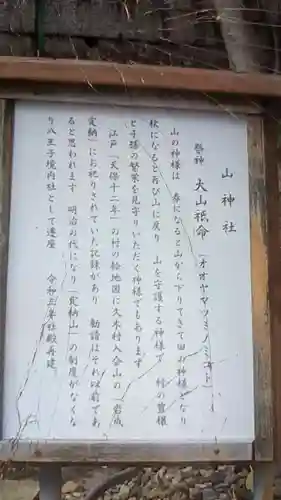 山神社
祭神 大山祇命（オオヤマツミノミコト）
山の神様は 春になると山から下りてきて田の神様となり
秋になると再び山に戻り 山を守護する神様で 村の豊穣
と子孫の繁栄を見守りいただく神様でもあります
江戸「天保十二年」の村の絵地図に久木村入会山の「岩成
定納」にお祀りされていた記録があり 勧請はそれ以前であ
ると思われます 明治の代になり「定納山」の制度がなくな
り八王子境内社として遷座 令和三年社殿再建